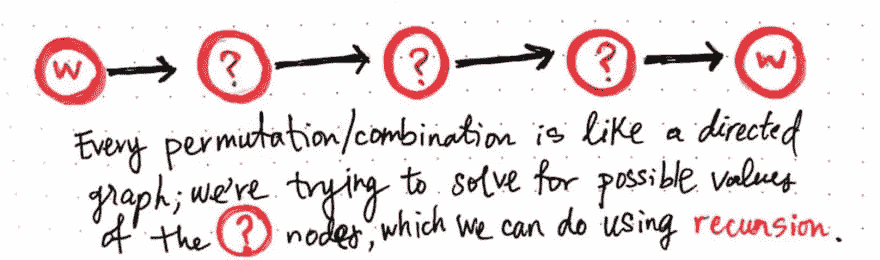 w ? ? ? w
Every permutation/combination is like a directed
graph; we're trying to solve for possible values
of the ? nodes, which we can do using recursion.